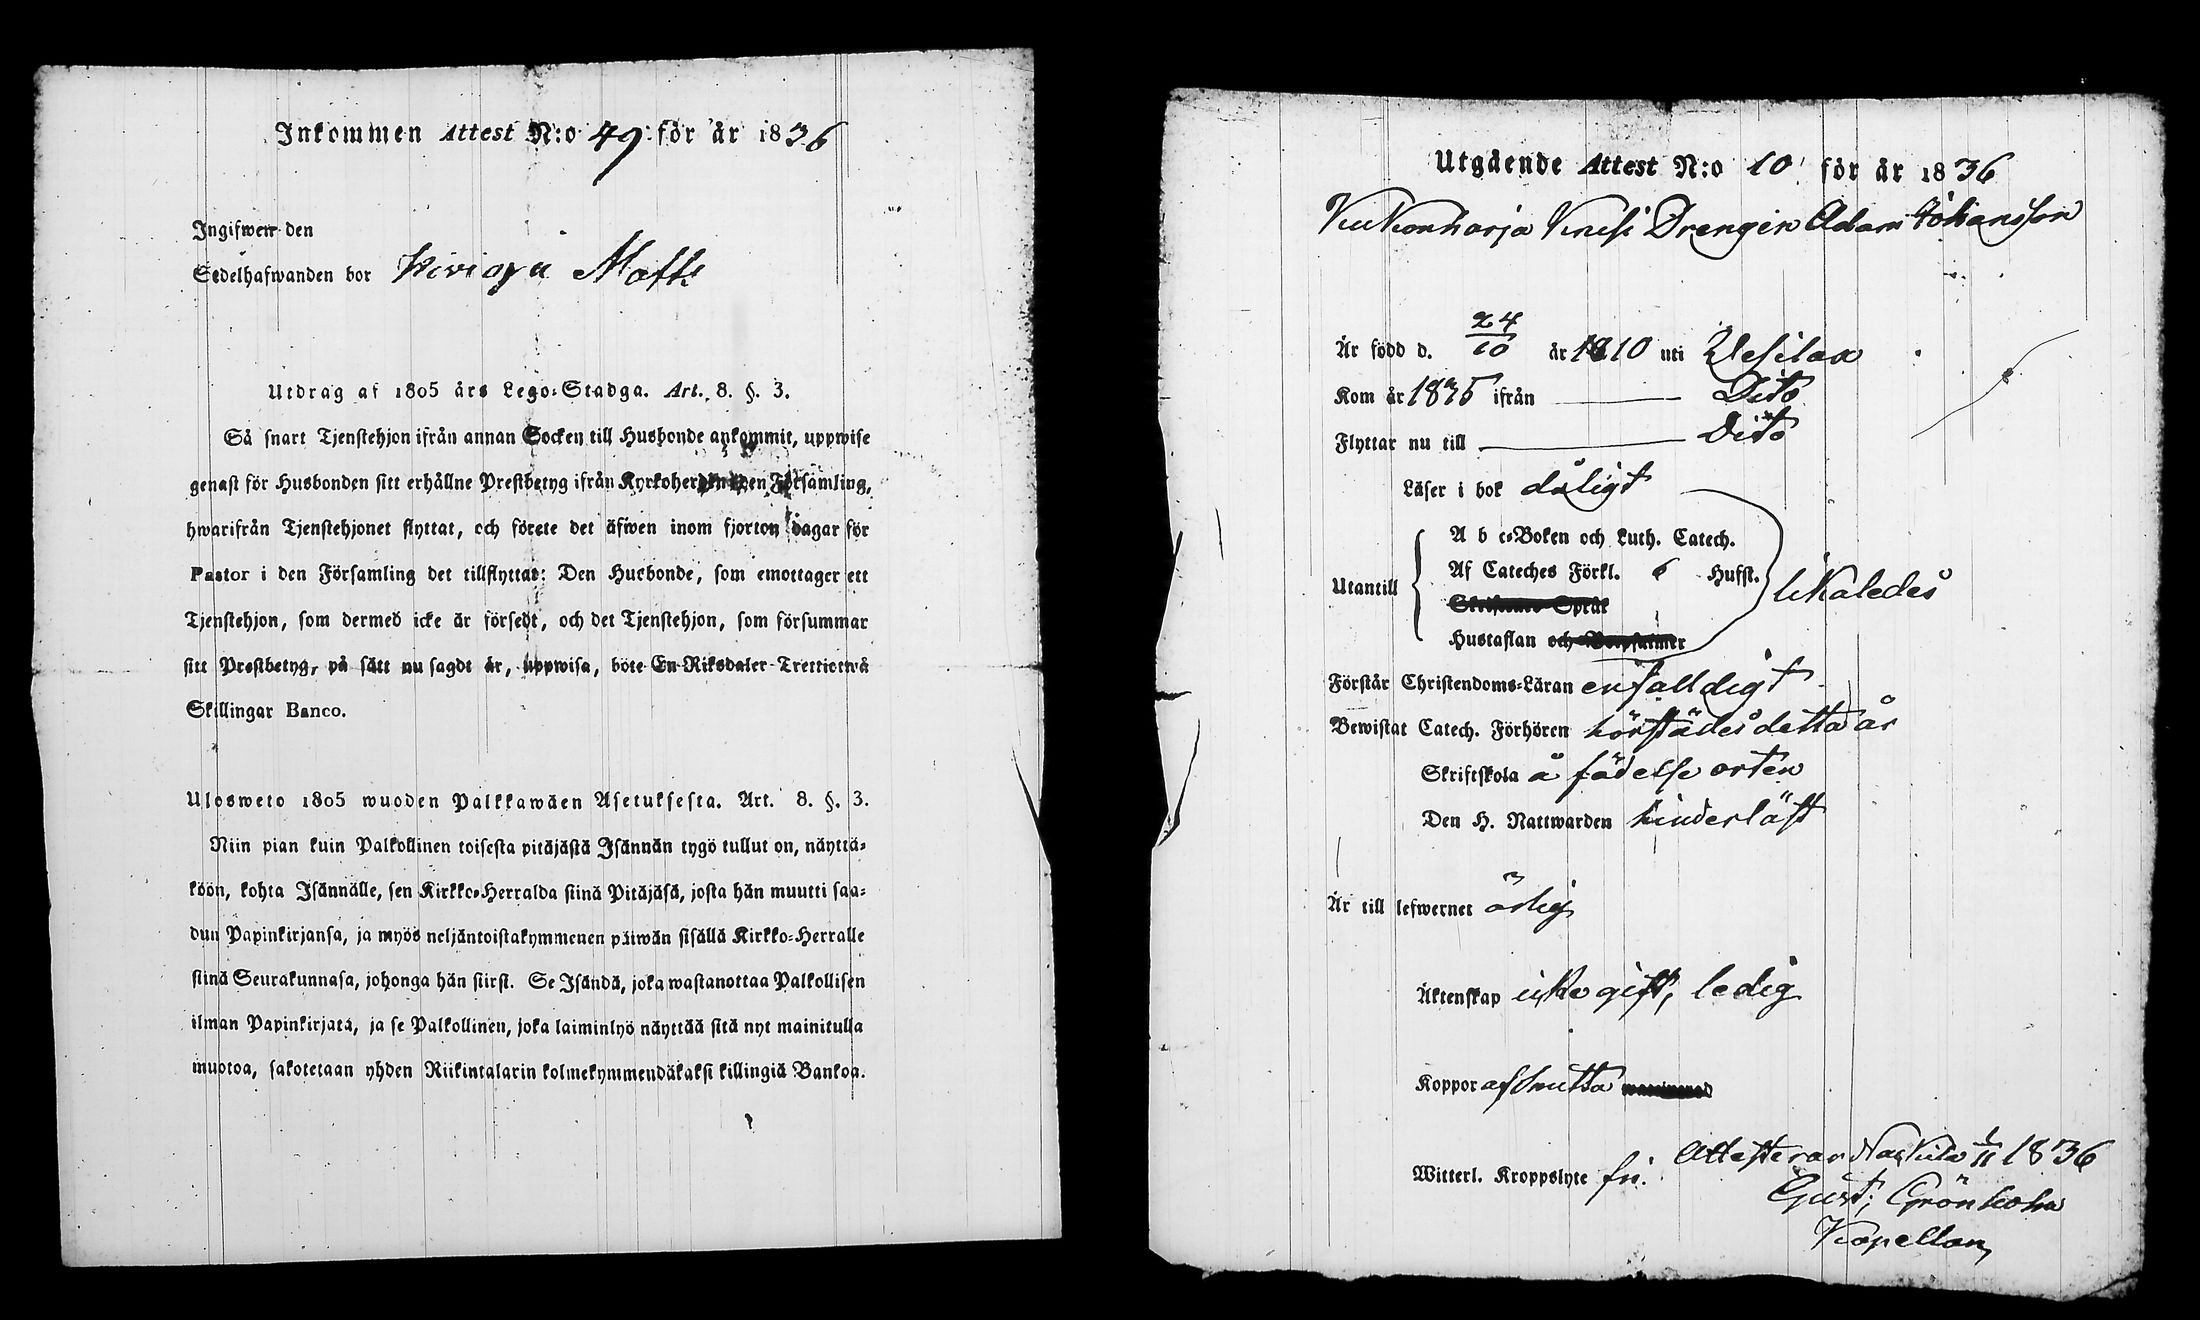 Inkommen Attest N:o 49 för år 1836
Ingifwen den
Sedelhafwanden bor Matti
Utdrag af 1805 års Lego-Stadga. Art. 8. §. 3.
Så snart Tjenstehjon ifrån annan Socken till Husbonde ankommit, uppwise
genast för Husbonden sitt erhållne Prestbetyg ifrån Kyrkoherden i den Församling,
hwarifrån Tjenstehjonet flyttat, och förete det äfwen inom fjorton dagar för
Pastor i den Församling det tillflyttat: Den Husbonde, som emottager ett
Tjenstehjon, som dermed icke är försedt, och det Tjenstehjon, som försummar
sitt Prestbetyg, på sätt nu sagdt är, uppwisa, böte En Riksdaler Trettiotwå
Skillingar Banco.
Ulosweto 1805 wuoden Palkkawäen Asetuksesta. Art. 8. §. 3.
Niin pian kuin Palkollinen toisesta pitäjästä Isännän tygö tullut on, näyttä-
köön, kohta Isännälle, sen Kirkko-Herralda siinä Pitäjäsä, josta hän muutti saa-
dun Papinkirjansa, ja myös neljäntoistakymmenen päiwän sisällä Kirkko-Herralle
siinä Seurakunnasa, johonga hän siirsi. Se Isändä, joka wastanottaa Palkollisen
ilman Papinkirjata, ja se Palkollinen, joka laiminlyö näyttää sitä nyt mainitulla
muotoa, sakotetaan yhden Riikintalarin kolmekymmendäkaksi killingiä Bankoa.
Utgående Attest N:o 10 för år 1836
Kukonharja Knesi Drengen Adam Johansson
Är född d. 24/10 år 1810 uti Wesilax
Kom år 1835 ifrån Dito
Flyttar nu till Dito
Läser i bok dåligt
Utantill
A b c-Boken och Luth. Catech.
Af Cateches Förkl. 6 Hufst.
likaledes
Hustaflan
Förstår Christendoms-Läran enfalldigt
Bewistat Catech. Förhören härstädes detta år
Skriftskola å födelse orten
Den H. Nattwarden hinderlöst
Är till lefwernet ärlig
Äktenskap icke gift, ledig
Koppor
Witterl. Kroppslyte fri.
Attesterar Naskila 1/11 1836
Gust. Grönholm
Kapellan,